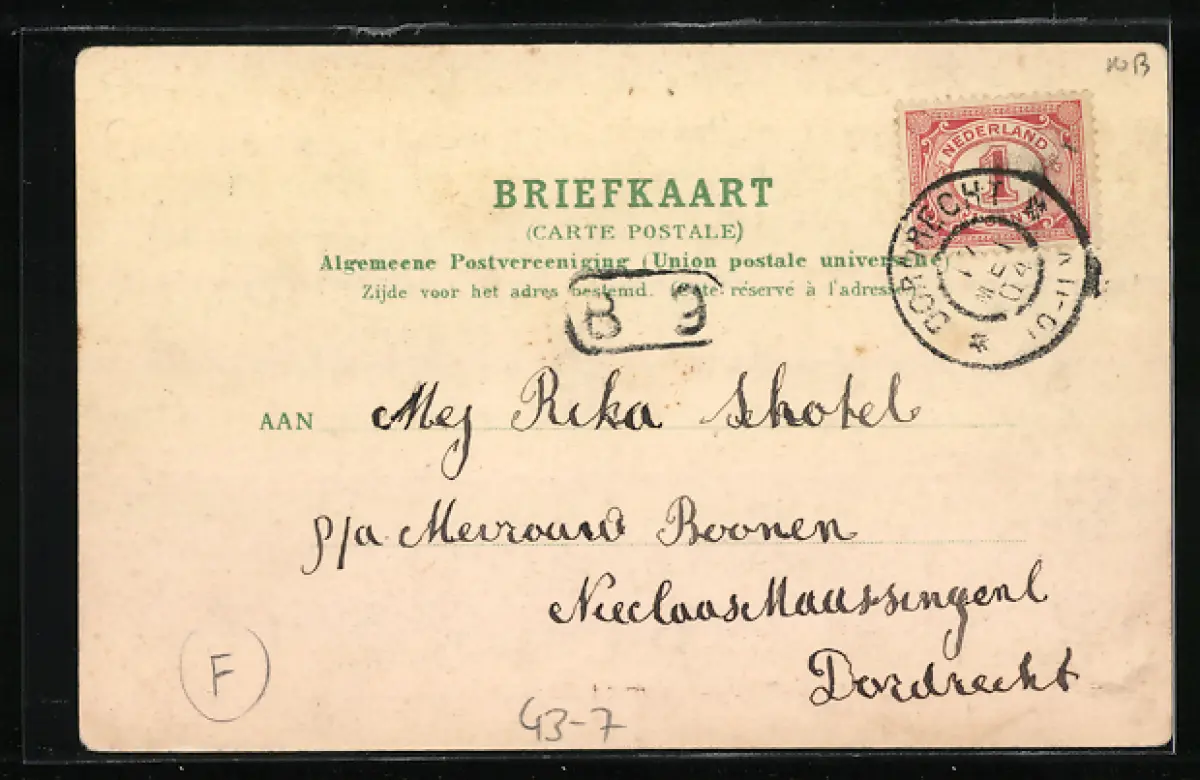 10B
NEDERLAND
1
BRIEFKAART
(CARTE POSTALE)
Algemeene Postvereeniging (Union postale universelle)
Zijde voor het adres bestemd. (Côté réservé à l'adresse)
DORDRECHT
MEI
04
B 9
AAN Mej Rika Schotel
p/a Mevrouw Boonen
Nicolaas Maassingenl
Dordrecht
F
43-7